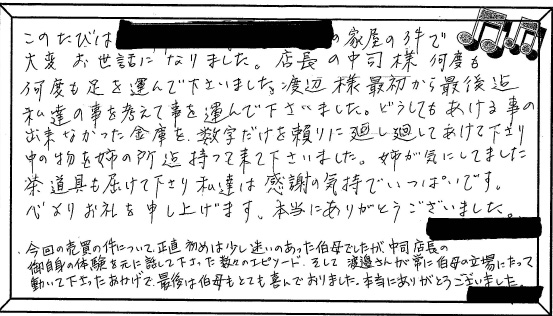 このたびは の家屋の件で
大変お世話になりました。店長の中司様 何度も
何度も足を運んで下さいました。渡辺様最初から最後迄
私達の事を考えて事を運んで下さいました。どうしてもあける事の
出来なかった金庫を、数字だけを頼りに廻し廻してあけて下さり
中の物を姉の所迄持って来て下さいました。姉が気にしてました
茶道具も届けて下さり私達は感謝の気持でいっぱいです。
心よりお礼を申し上げます、本当にありがとうございました。
今回の売買の件について、正直初めは少し迷いのあった伯母でしたが、中司店長の
御自身の体験を元に話して下さった数々のエピソード、そして渡邉さんが常に伯母の立場にたって
動いて下さったおかげで、最後は伯母もとても喜んでおりました。本当にありがとうございました。